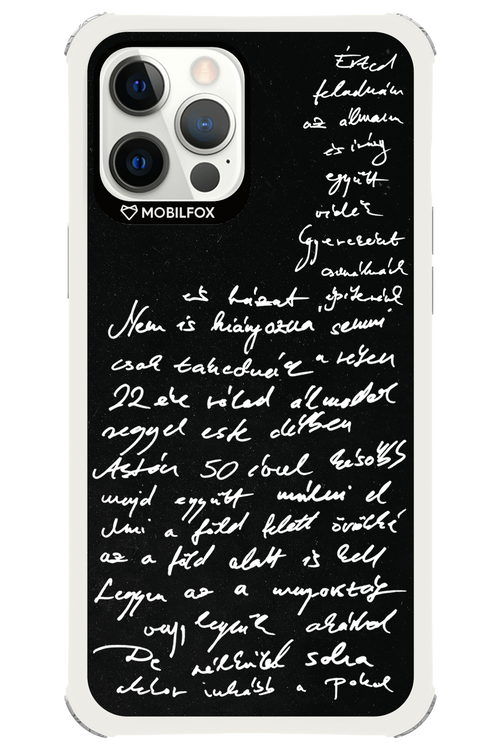 MOBILFOX
Érted
feladnám
az álmom
és irány
együtt
vidék
Gyerekeket
csinálnánk
és házat építenénk
Nem is hiányozna semmi
csak takednánk a réten
22 éve rólad álmodok
reggel este délben
Aztán 50 évvel később
majd együtt múlni el
Ami a föld felett örökké
az a föld alatt is kell
Legyen az a mennyország
vagy legyünk akárhol
De nélküled soha
akkor inkább a Pokol